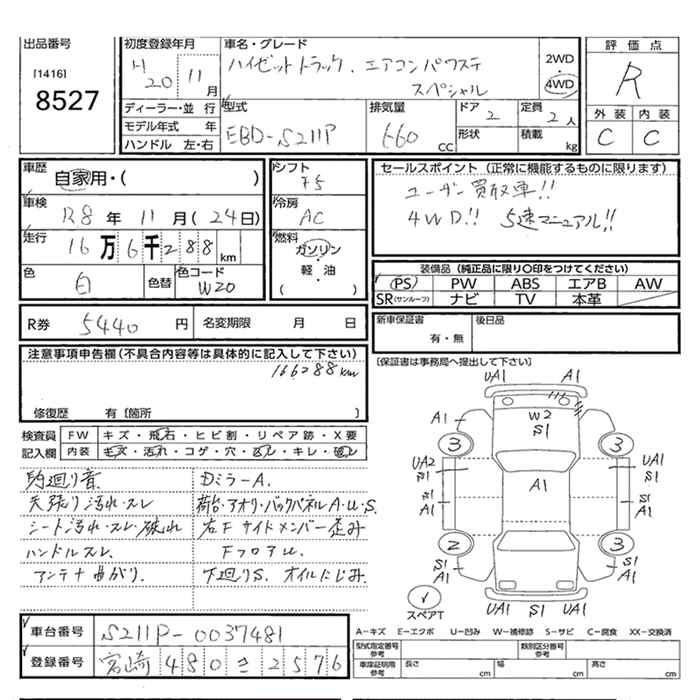 出品番号
[1416]
8527
初度登録年月
H20 11月
車名・グレード
ハイゼットトラック. エアコンパワステ
スペシャル
2WD
4WD
評価点
R
外装 内装
C C
ディーラー・並行
モデル年式 年
ハンドル 左・右
型式
EBD-S211P
排気量
660 CC
ドア 2
形状
定員 2 人
積載 kg
車歴
自家用・( )
車検
R8年 11月(24日)
走行
16万6千288km
色
白
色替
色コード
W20
シフト
F5
冷房
AC
燃料
ガソリン
軽・油
( )
セールスポイント (正常に機能するものに限ります)
ユーザー買取車!!
4WD!! 5速マニュアル!!
装備品 (純正品に限り○印をつけてください)
PS PW ABS エアB AW
SR(サンルーフ) ナビ TV 本革
R券 5440円
名変期限 月 日
新車保証書
有・無
後日品
注意事項申告欄(不具合内容等は具体的に記入して下さい)
166288km
修復歴 有〔箇所 〕
〔保証書は事務局へ提出して下さい〕
検査員
記入欄
FW キズ・飛石・ヒビ割・リペア跡・X要
内装 キズ・汚れ・コゲ・穴・スレ・キレ・破レ
足廻り音
天張り汚れ・スレ
シート汚れ・スレ・破れ
ハンドルスレ.
アンテナ曲がり.
DミラーA.
荷台・アオリ・バックパネルA・U・S.
右Fサイドメンバー歪み
FフロアU.
下廻りS. オイルにじみ.
UA1 A1
A1 W2 S1 A1
3 3
UA2 S1 A1 UA1 S1
S1 A1 S1 A1
2 3
S1 A1 S1 A1
スペアT
UA1 S1 UA1
A−キズ E−エクボ U−凹み W−補修跡 S−サビ C−腐食 XX−交換済
車台番号
S211P-0037481
登録番号
宮崎 480 き 2576
型式指定番号
参考
類別区分番号
参考
車庫証明用
参考
長さ cm
幅 cm
高さ cm